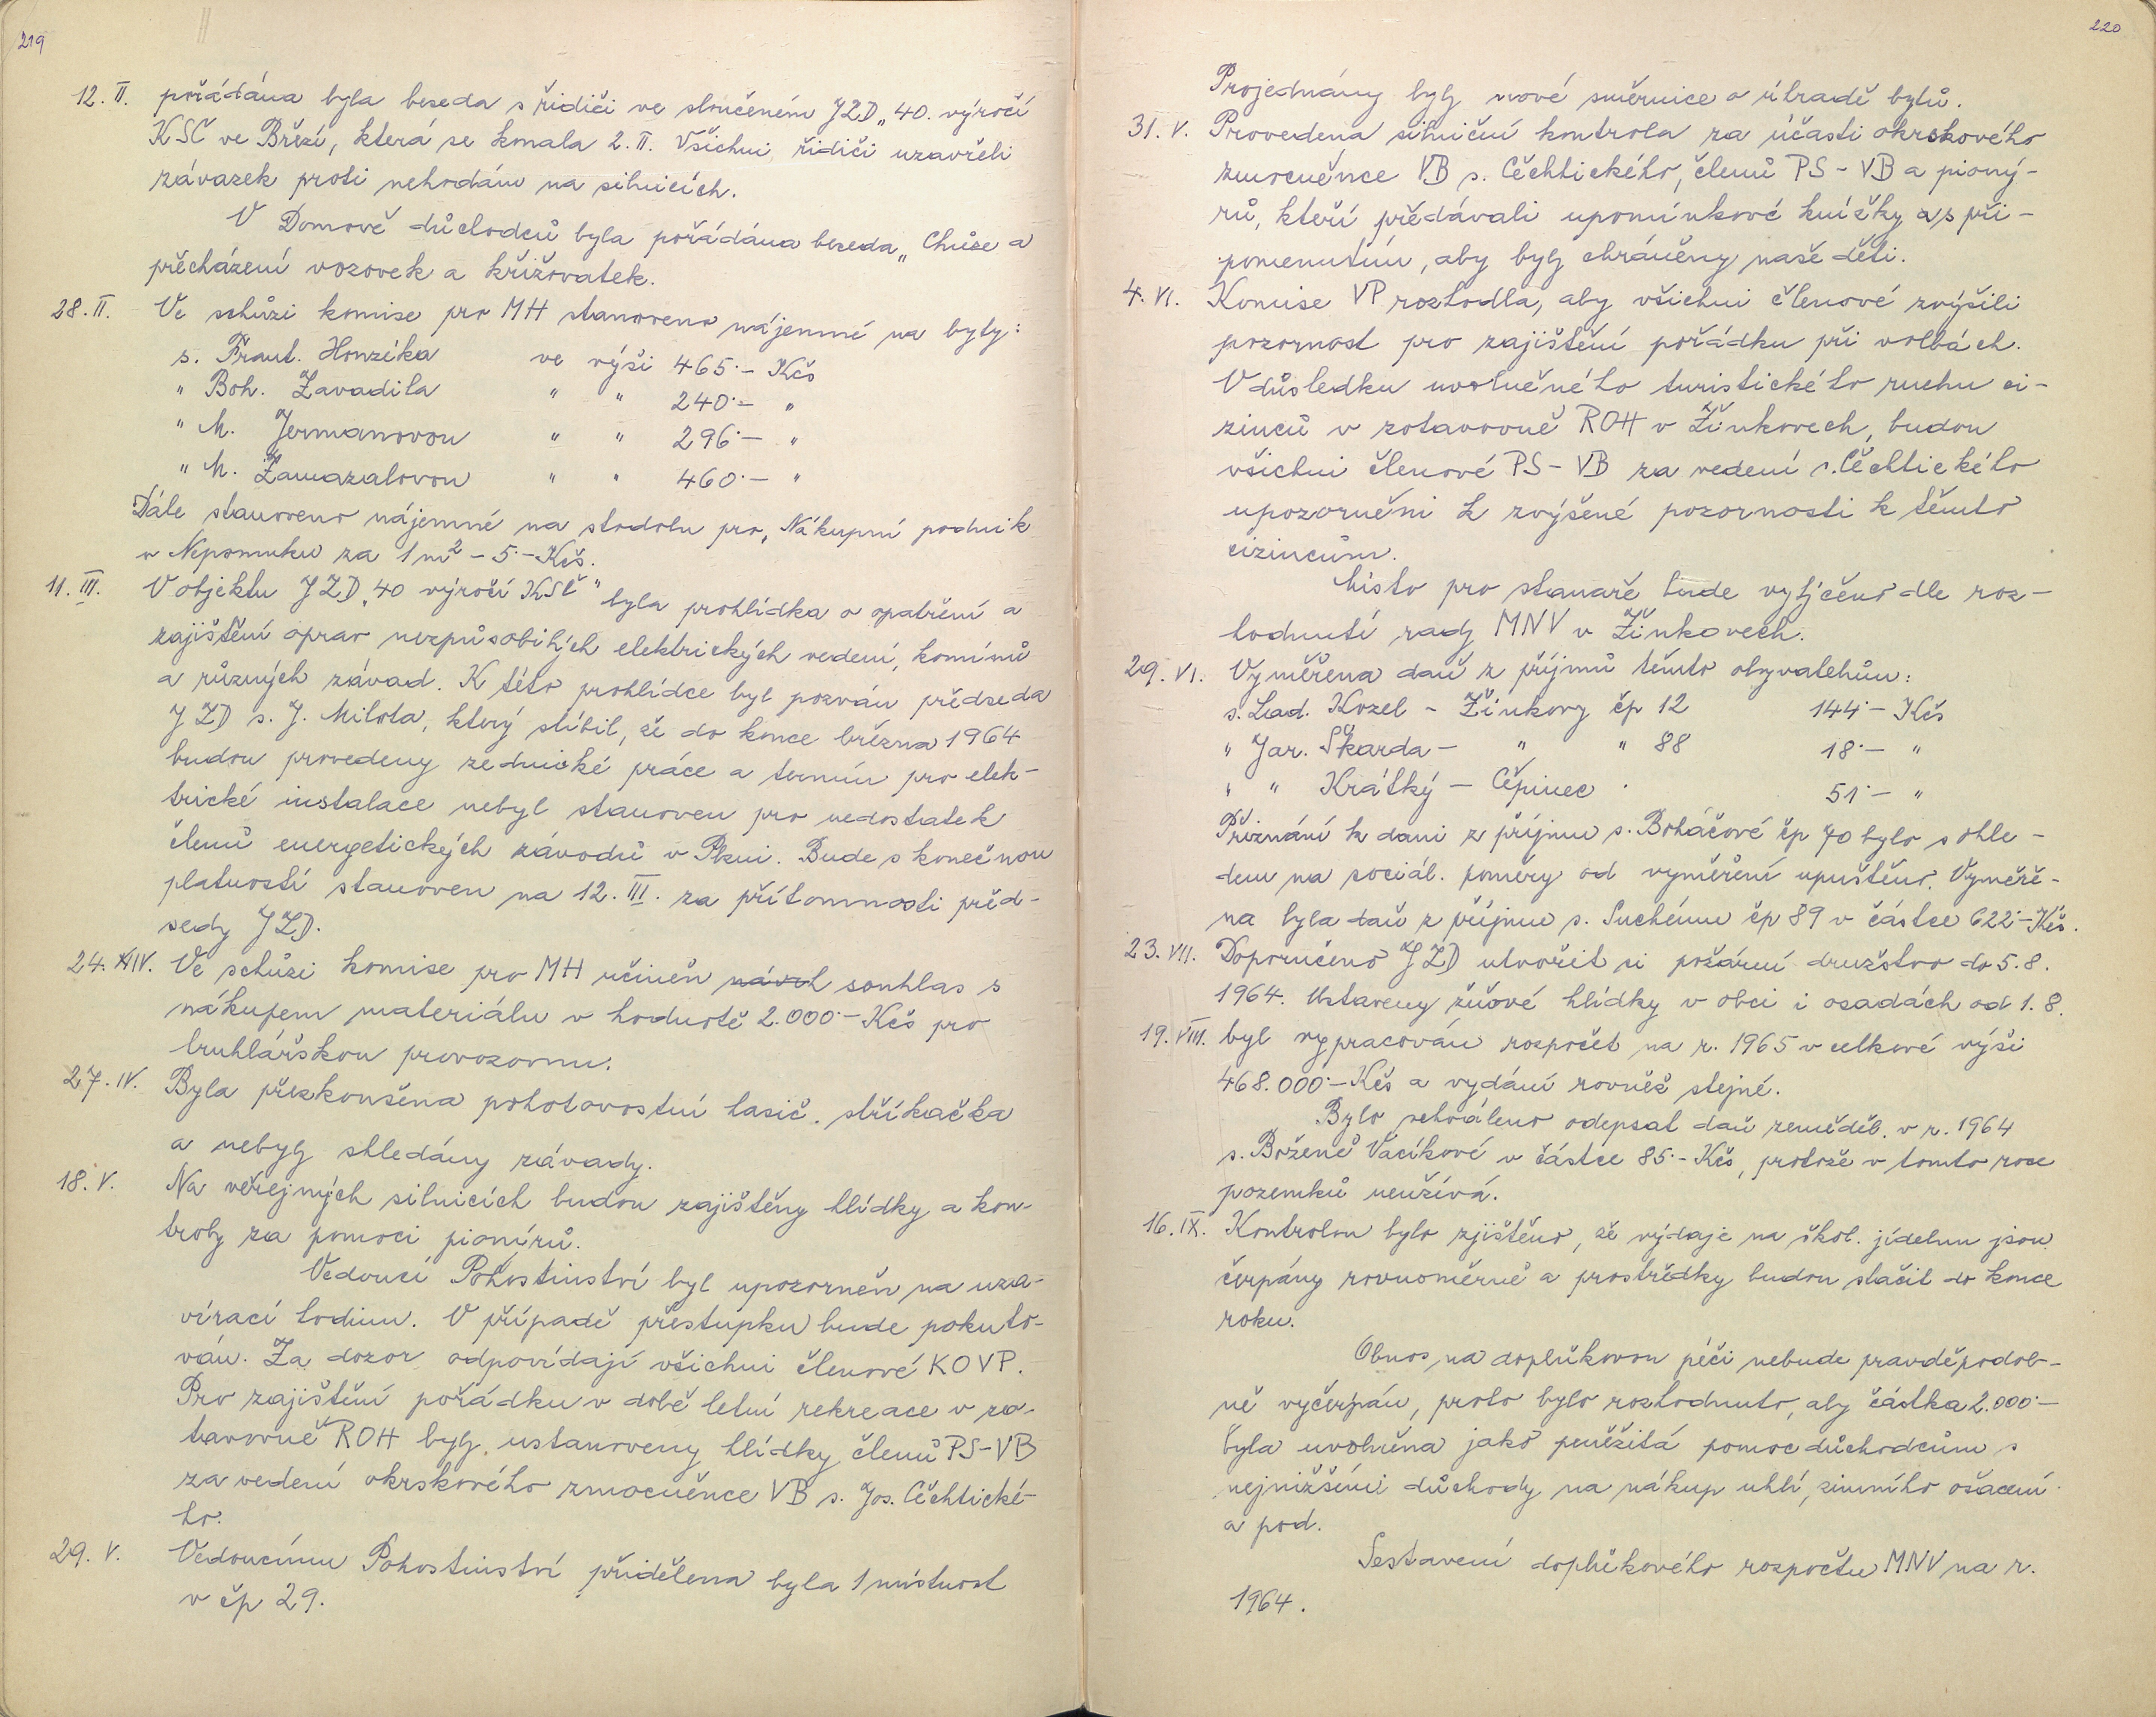 219
12. II. pořádána byla beseda s řidiči ve sloučeném JZD „40. výročí
KSČ ve Březí, která se konala 2. II. Všichni řidiči uzavřeli
závazek proti nehodám na silnicích.
V Domově důchodců byla pořádána beseda „Chůze a
přecházení vozovek a křižovatek.
28. II. Ve schůzi komise pro MH stanoveno nájemné na byty:
s. Frant. Honzíka ve výši 465·– Kčs
" Boh. Zavadila " " 240·– "
" M. Jermanovou " " 296·– "
" M. Zamazalovou " " 460·– "
Dále stanoveno nájemné na stodolu pro „Nákupní podnik
v Nepomuku za 1 m² – 5·– Kčs.
11. III. V objektu JZD „40 výročí KSČ" byla prohlídka o opatření a
zajištění oprav nezpůsobilých elektrických vedení, komínů
a různých závad. K této prohlídce byl pozván předseda
JZD s. J. Milota, který slíbil, že do konce března 1964
budou provedeny zednické práce a termín pro elek-
trické instalace nebyl stanoven pro nedostatek
členů energetických závodů v Plzni. Bude s konečnou
platností stanoven na 12. III. za přítomnosti před-
sedy JZD.
24. IV. Ve schůzi komise pro MH učiněn návrh souhlas s
nákupem materiálu v hodnotě 2.000·– Kčs pro
truhlářskou provozovnu.
27. IV. Byla přezkoušena pohotovostní hasič. stříkačka
a nebyly shledány závady.
18. V. Na veřejných silnicích budou zajištěny hlídky a kon-
troly za pomoci pionírů.
Vedoucí Pohostinství byl upozorněn na uza-
vírací hodinu. V případě přestupku bude pokuto-
ván. Za dozor odpovídají všichni členové KOVP.
Pro zajištění pořádku v době letní rekreace v zo-
tavovně ROH byly ustanoveny hlídky členů PS-VB
za vedení okrskového zmocněnce VB s. Jos. Čechtické-
ho.
29. V. Vedoucímu Pohostinství přidělena byla 1 místnost
v čp 29.
220
Projednány byly nové směrnice o úhradě bytů.
31. V. Provedena silniční kontrola za účasti okrskového
zmocněnce VB s. Čechtického, členů PS – VB a pioný-
rů, kteří předávali upomínkové knížky s při-
pomenutím, aby byly chráněny naše děti.
4. VI. Komise VP rozhodla, aby všichni členové zvýšili
pozornost pro zajištění pořádku při volbách.
V důsledku uvolněného turistického ruchu ci-
zinců v zotavovně ROH v Žinkovech, budou
všichni členové PS – VB za vedení s. Čechtického
upozorněni k zvýšené pozornosti k těmto
cizincům.
Místo pro stanaře bude vytýčeno dle roz-
hodnutí rady MNV v Žinkovech.
29. VI. Vyměřena daň z příjmů těmto obyvatelům:
s. Lad. Kozel – Žinkovy čp 12 144·– Kčs
" Jar. Škarda – " " 88 18·– "
" " Krátký – Čepinec 51·– "
Přiznání k dani z příjmu s. Boháčové čp 70 bylo s ohle-
dem na sociál. poměry od vyměření upuštěno. Vyměře-
na byla daň z příjmu s. Suchému čp 89 v částce 622·– Kčs.
23. VII. Doporučeno JZD utvořit si požární družstvo do 5. 8.
1964. Ustaveny žňové hlídky v obci i osadách od 1. 8.
19. VIII. byl vypracován rozpočet na r. 1965 v celkové výši
468.000·– Kčs a vydání rovněž stejné.
Bylo schváleno odepsat daň zeměděl. v r. 1964
s. Boženě Vacíkové v částce 85·– Kčs, protože v tomto roce
pozemků neužívá.
16. IX. Kontrolou bylo zjištěno, že výdaje na škol. jídelnu jsou
čerpány rovnoměrně a prostředky budou stačit do konce
roku.
Obnos na doplňkovou péči nebude pravděpodob-
ně vyčerpán, proto bylo rozhodnuto, aby částka 2.000·–
byla uvolněna jako peněžitá pomoc důchodcům s
nejnižšími důchody na nákup uhlí, zimního ošacení
a pod.
Sestavení doplňkového rozpočtu MNV na r.
1964.